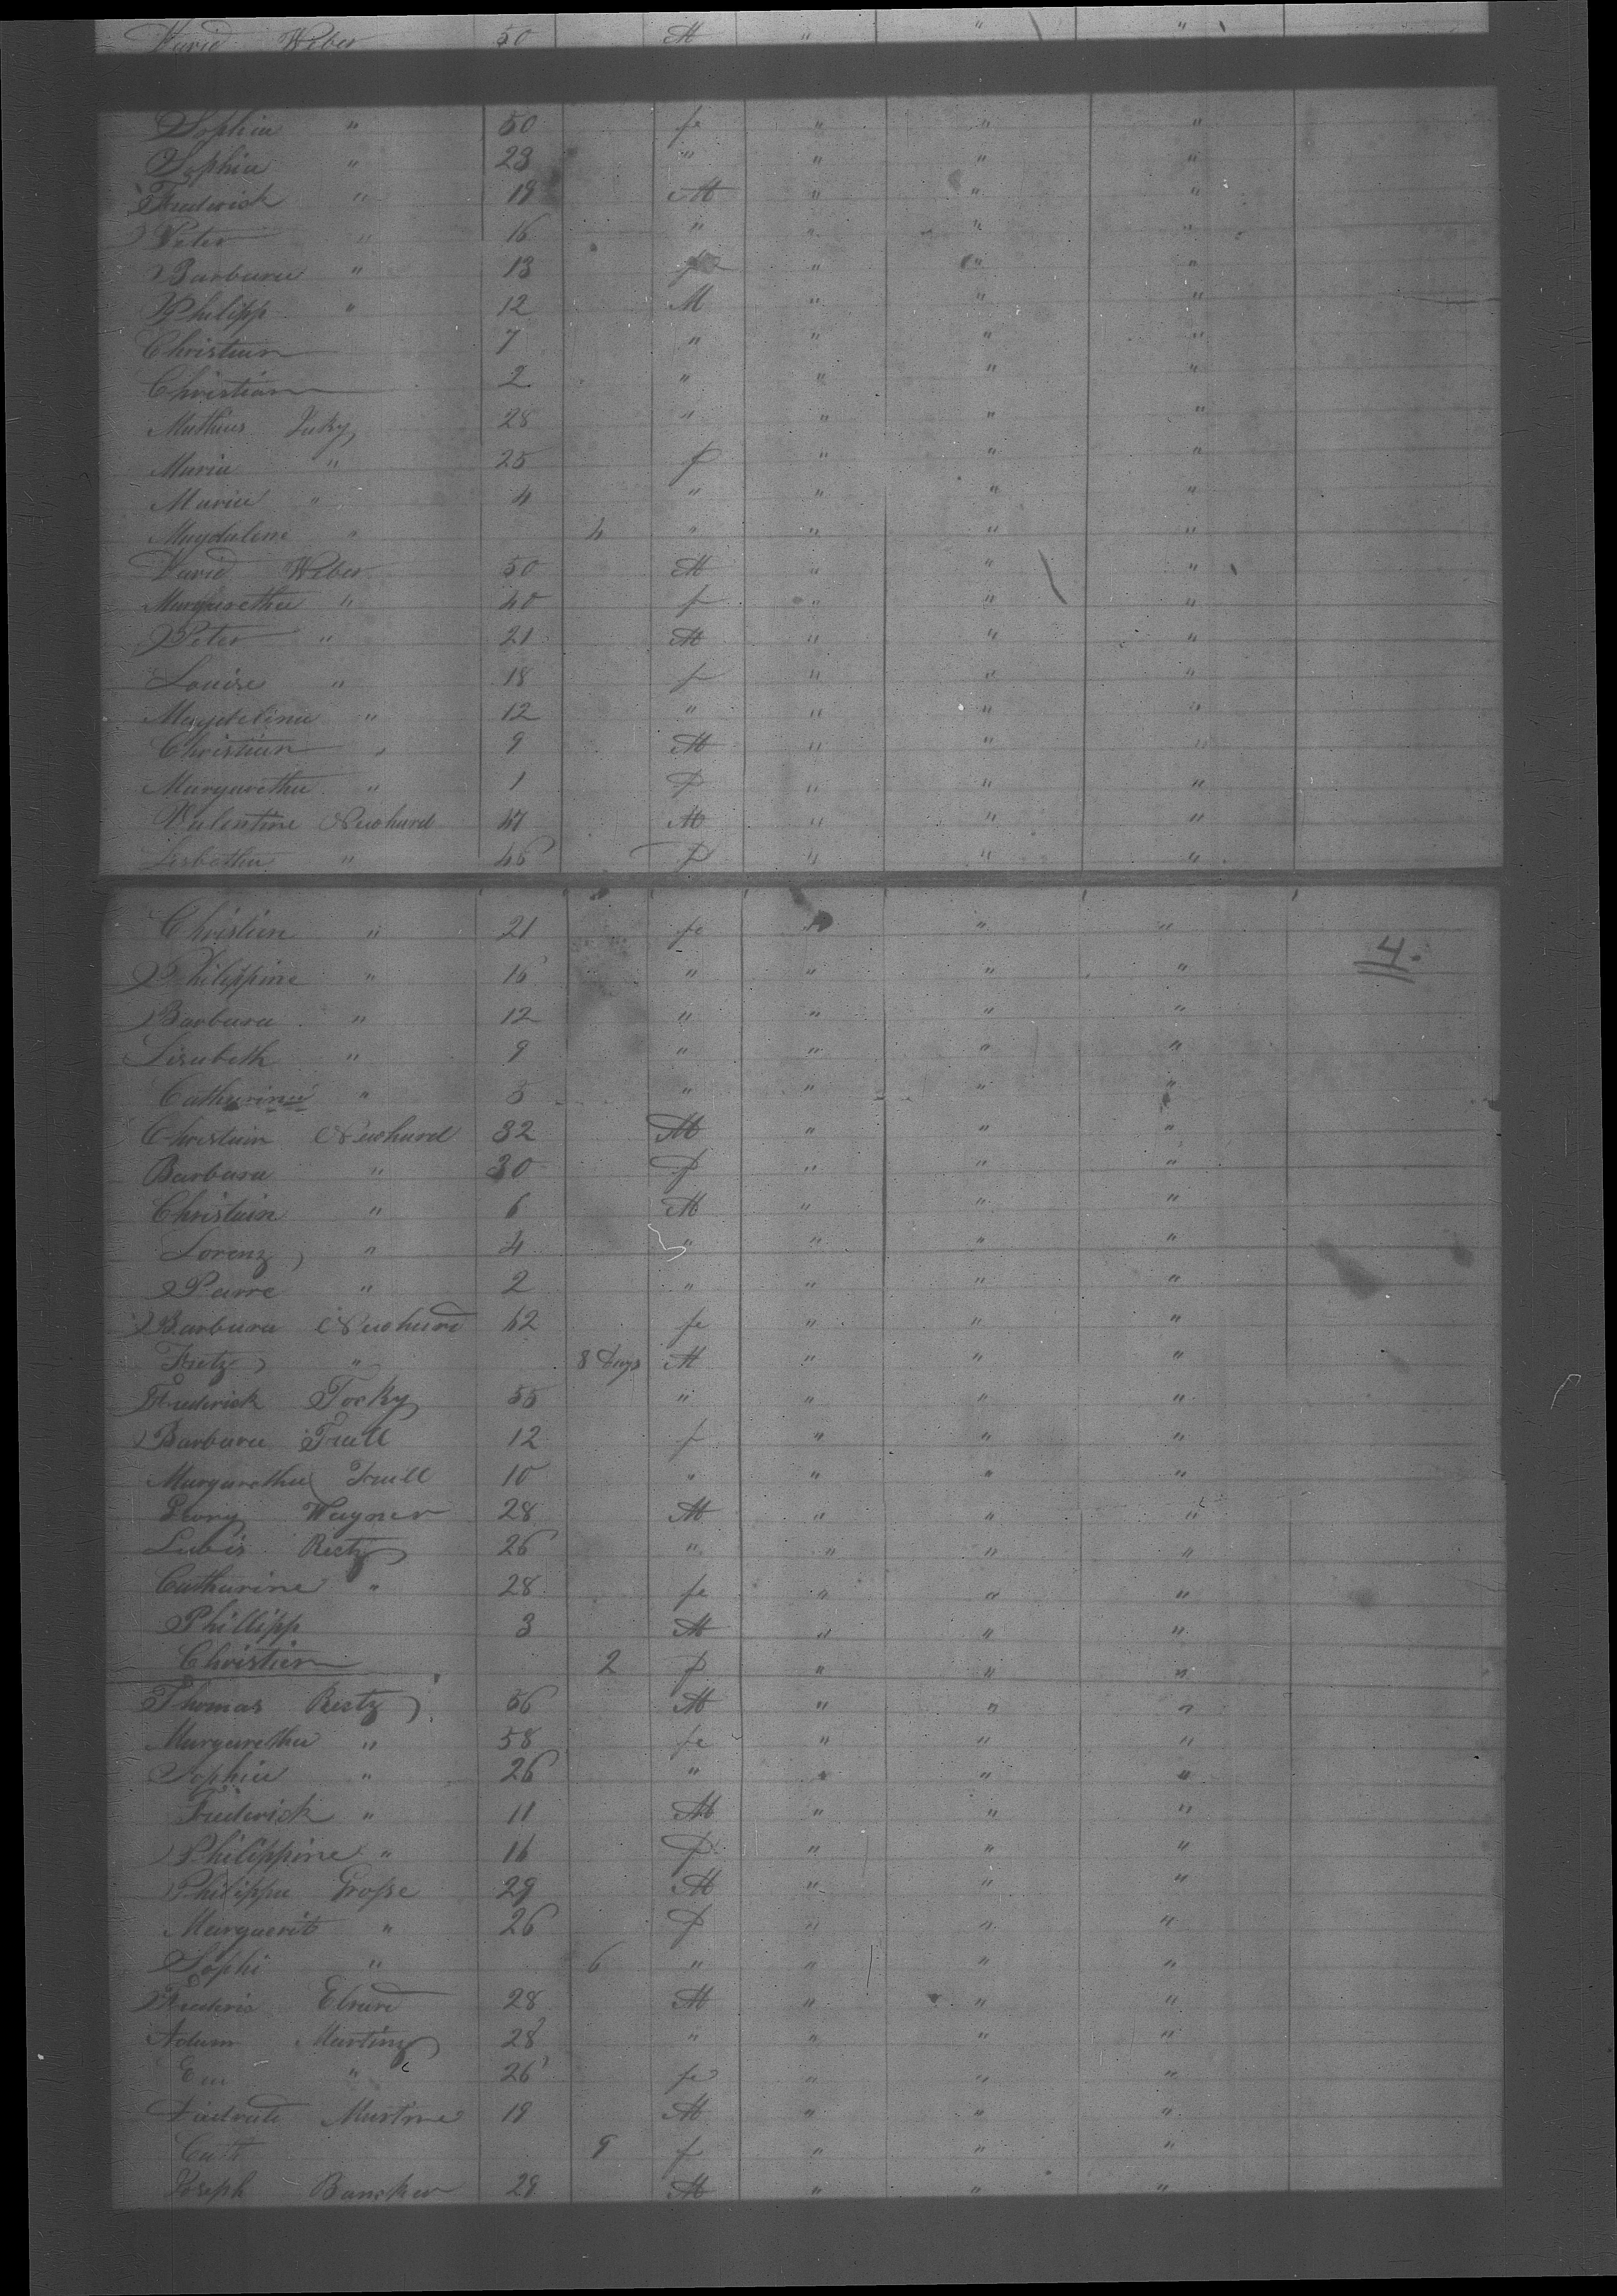 David Weber 50 M " " "
Sophia " 50 fe " " "
Sophia " 23 " " " "
Frederick " 19 M " " "
Peter " 16 " " " "
Barbara " 13 f " " "
Philipp " 12 M " " "
Christian 7 " " " "
Christian 2 " " " "
Mathias 28 " " " "
Maria " 25 f " " "
Maria " 4 " " " "
Magdalene " 4 " " " "
David Weber 50 M " " "
Margaretha " 40 f " " "
Peter " 21 M " " "
Louise " 18 f " " "
Magdelina " 12 " " " "
Christian " 9 M " " "
Margaretha " 1 f " " "
Valentine Newhard 47 M " " "
Lisbetha " 46 f " " "
Christien " 21 fe " " "
4.
Philippine " 16 " " " "
Barbara " 12 " " " "
Lisabeth " 9 " " " "
Catharina " 5 " " " "
Christain Newhard 32 M " " "
Barbara " 30 f " " "
Christain " 6 M " " "
Lorenz " 4 " " " "
Parre " 2 " " " "
Barbara Newhard 62 fe " " "
Fretz " 8 Days M " " "
Frederick Torky 55 " " " "
Barbara Traill 12 f " " "
Margaretha Traill 10 " " " "
Georg Wagner 28 M " " "
Lewis Reetz 26 " " " "
Catharine " 28 fe " " "
Phillipp 3 M " " "
Christien 2 f " " "
Thomas Reetz 56 M " " "
Margaretha " 58 fe " " "
Sophia " 26 " " " "
Frederick " 11 M " " "
Philippine " 16 f " " "
Philippe Groſse 29 M " " "
Marguerite " 26 f " " "
Sophi " 6 " " " "
Frederic 28 M " " "
Adam Martin 28 " " " "
Eva " 26 fe " " "
Martine 19 M " " "
Cath 9 f " " "
Joseph Bancker 29 M " " "